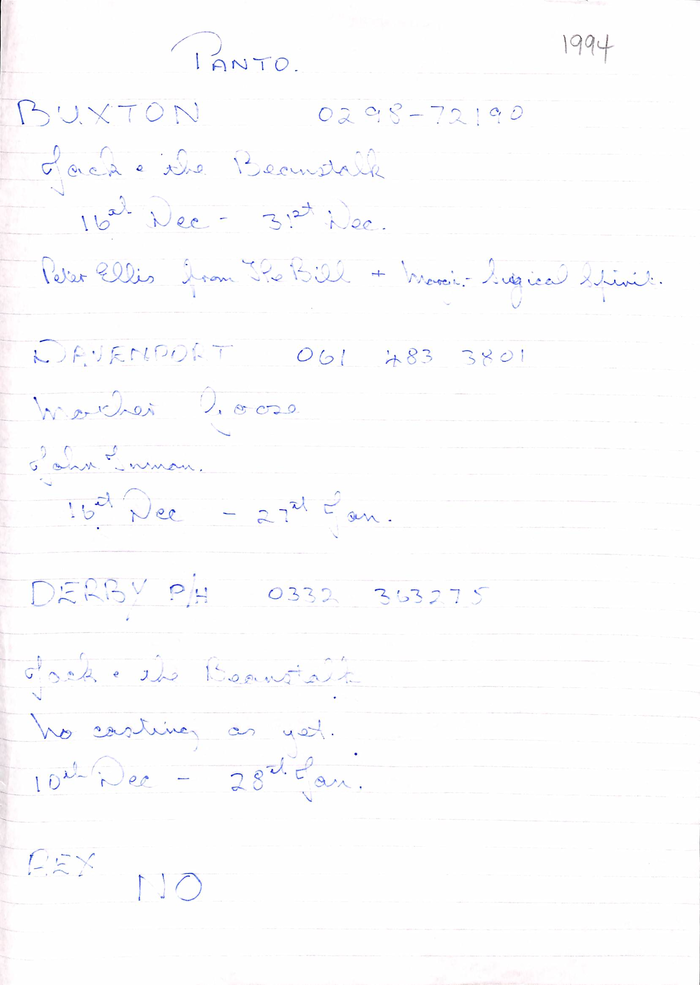 1994
PANTO.
BUXTON 0298-72190
Jack & the Beanstalk
16th Dec - 31st Dec.
Peter Ellis from The Bill + Margi- Surgical Spirit.
DAVENPORT 061 483 3801
Mother Goose
John Inman.
16th Dec - 27th Jan.
DERBY P/H 0332 363275
Jack & the Beanstalk
No casting as yet.
10th Dec - 28th Jan.
REX NO